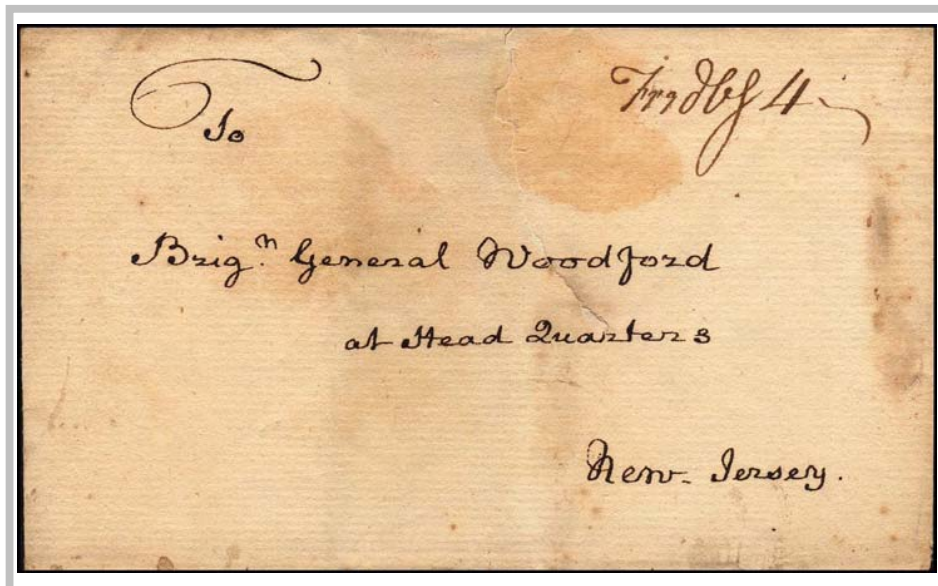 To
Frydbg 4
Brig.n General Woodford
at Head Quarters
New-Jersey.